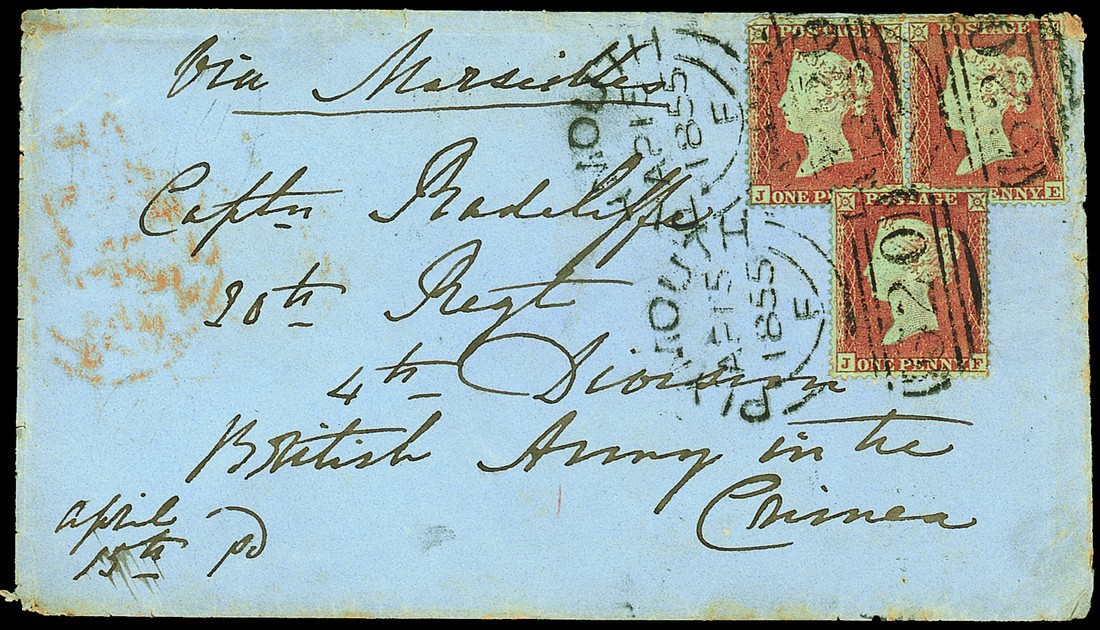 Via Marseilles
Captn Radcliffe
20th Regt
4th Division
British Army in the
Crimea
april
15th pd
POSTAGE
J ONE PENNY
POSTAGE
PENNY E
POSTAGE
J ONE PENNY F
PLYMOUTH
AP 15
1855
F
PLYMOUTH
AP 15
1855
F
620